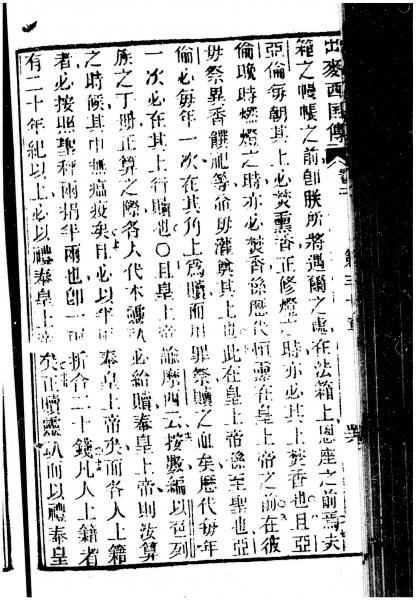 出麥西國傳 卷二 第三十章
箱之帳帳之前卽朕所將遇爾之處在法箱上恩座之前焉夫
亞倫每朝其上必焚熏香正修燈之時亦必其上焚香也且亞
倫晚時燃燈之時亦必焚香係歷代恒熏在皇上帝之前在彼
毋祭異香饌祀等侖毋灌奠其上也此在皇上帝係至聖也亞
倫必每年一次在其角上爲贖而用罪祭贖之血矣歷代每年
一次必在其上行贖也〇且皇上帝諭摩西云按數編以色列
族之丁冊正算之際各人代本靈魂必給贖奉皇上帝則汝算
之時候其中無瘟疫矣且必以半 奉皇上帝矣而各人上籍
者必按照聖秤兩捐半兩也卽一 折合二十錢凡人上籍者
有二十年紀以上必以禮奉皇上帝矣正贖靈 而以禮奉皇